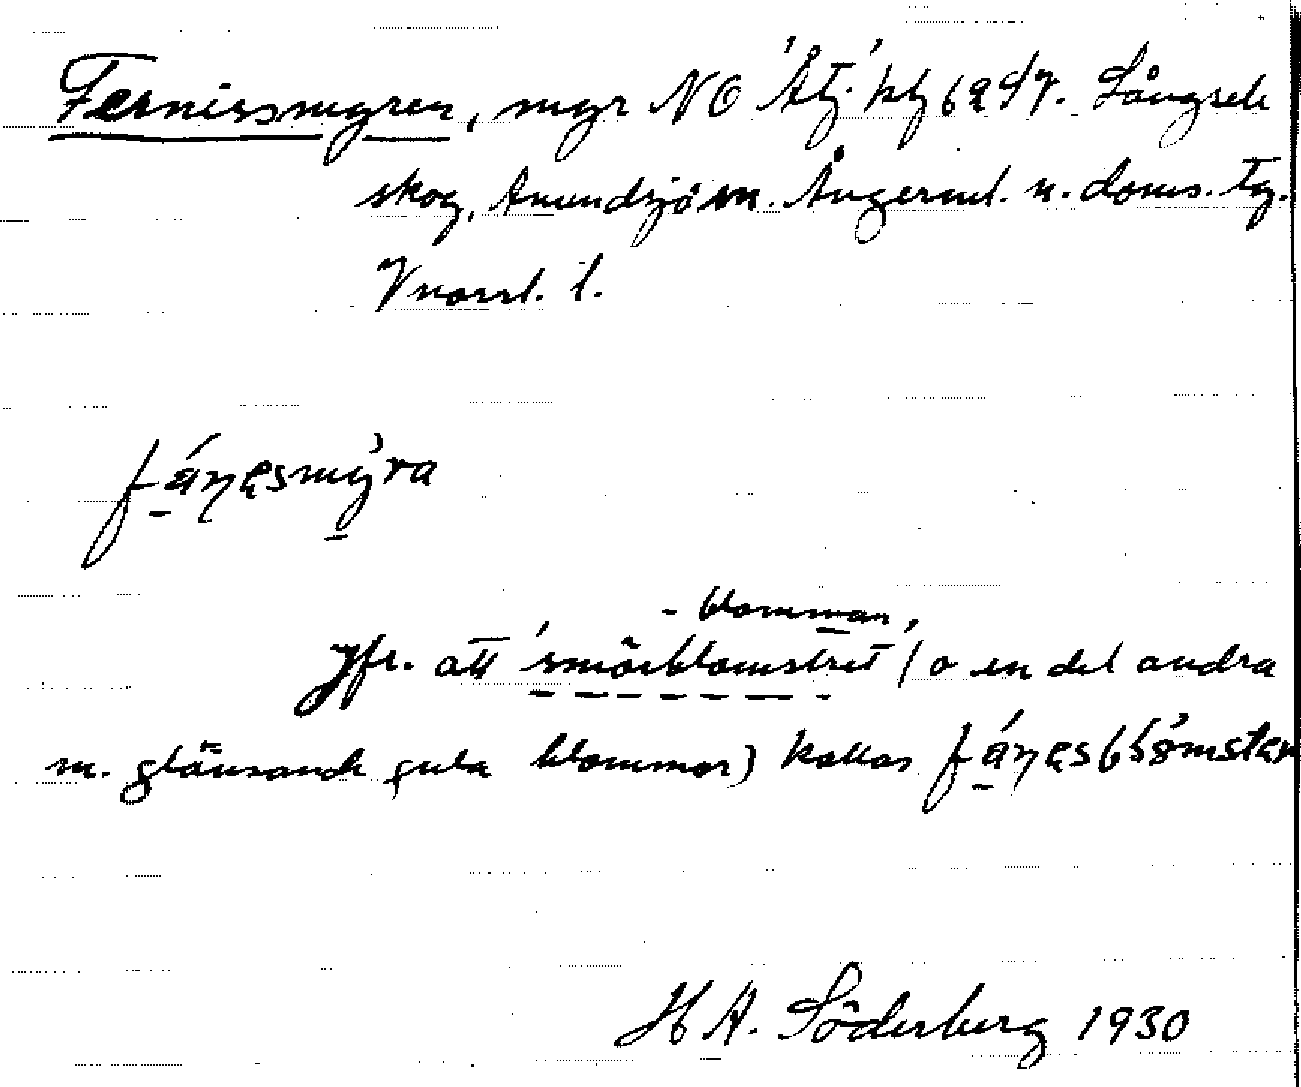 Fernissmyren, myr NO 'Åtj.' kbl 62 S7. Långsele
skog, Anundsjö sn. Ångerml. n. doms. tg.
Vnorrl. l.
fáṇesmýra
- blomman,
Jfr. att 'smörblomstret' (o en del andra
m. glänsande gula blommor) kallas fáṇesblómster
H A. Söderberg 1930